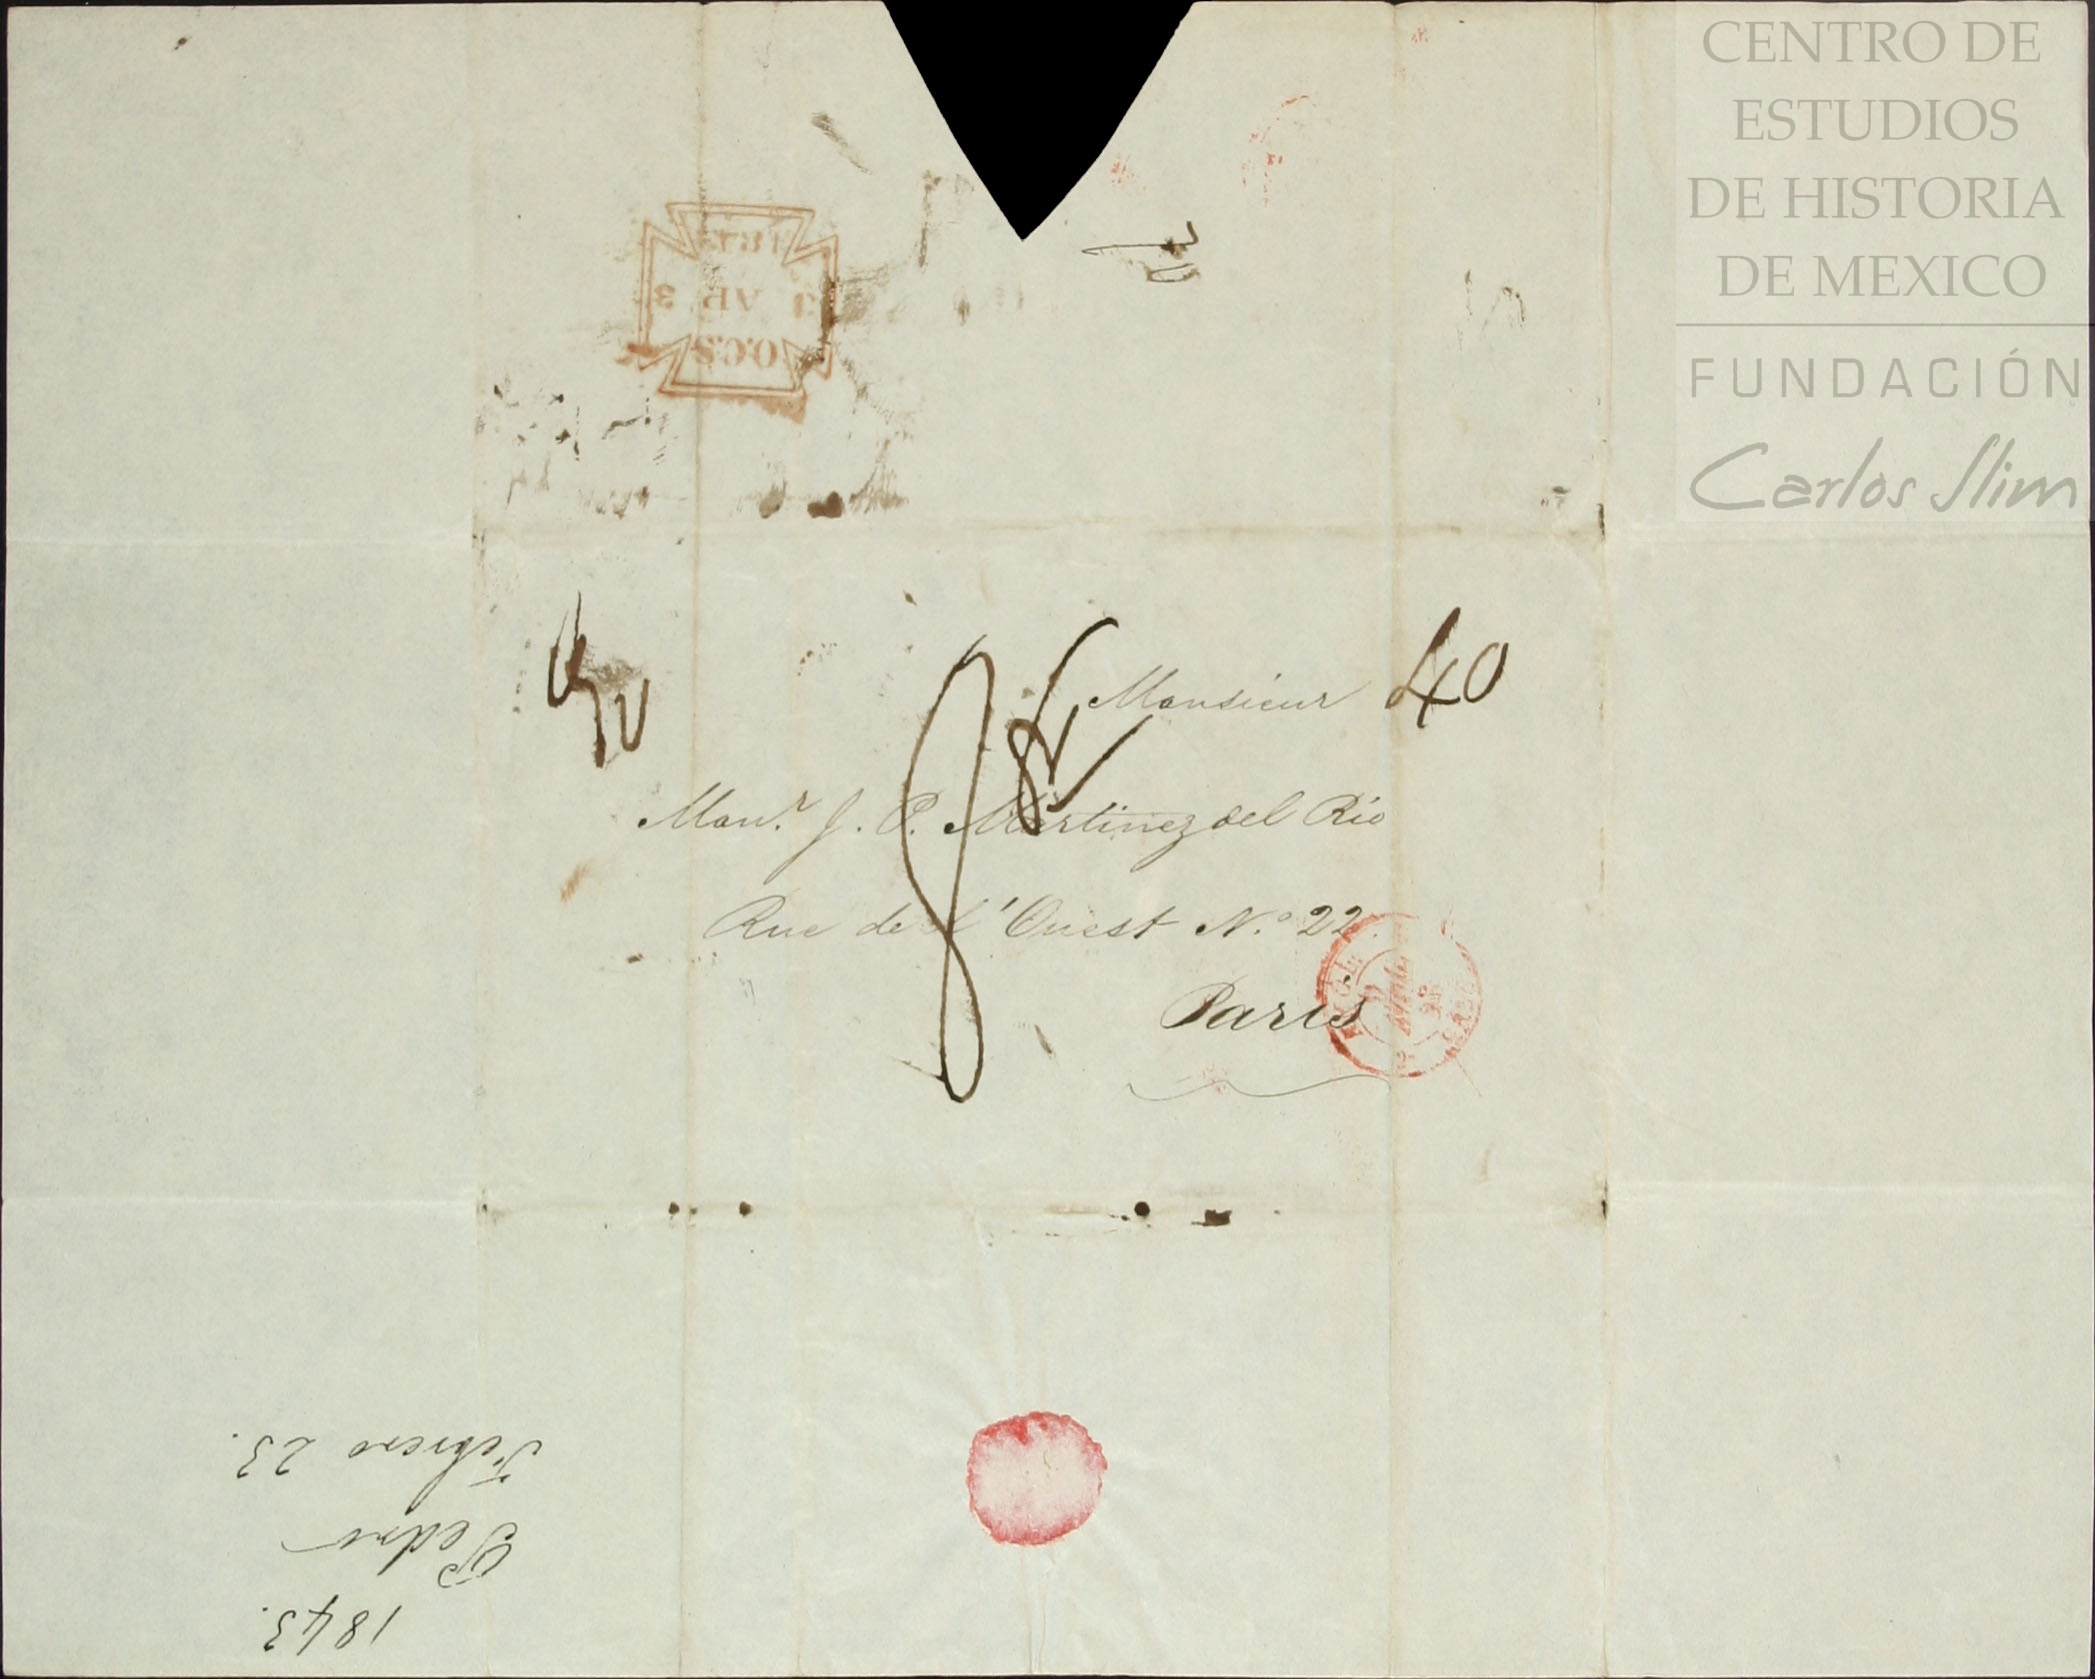 CENTRO DE
ESTUDIOS
DE HISTORIA
DE MEXICO
FUNDACIÓN
Carlos Slim
O.C.S
3 AP 3
Monsieur
40
Mon.r J. P. Martinez del Rio
Rue de l'Ouest N.o 22.
Paris
1843.
Pedro
Febrero 23.